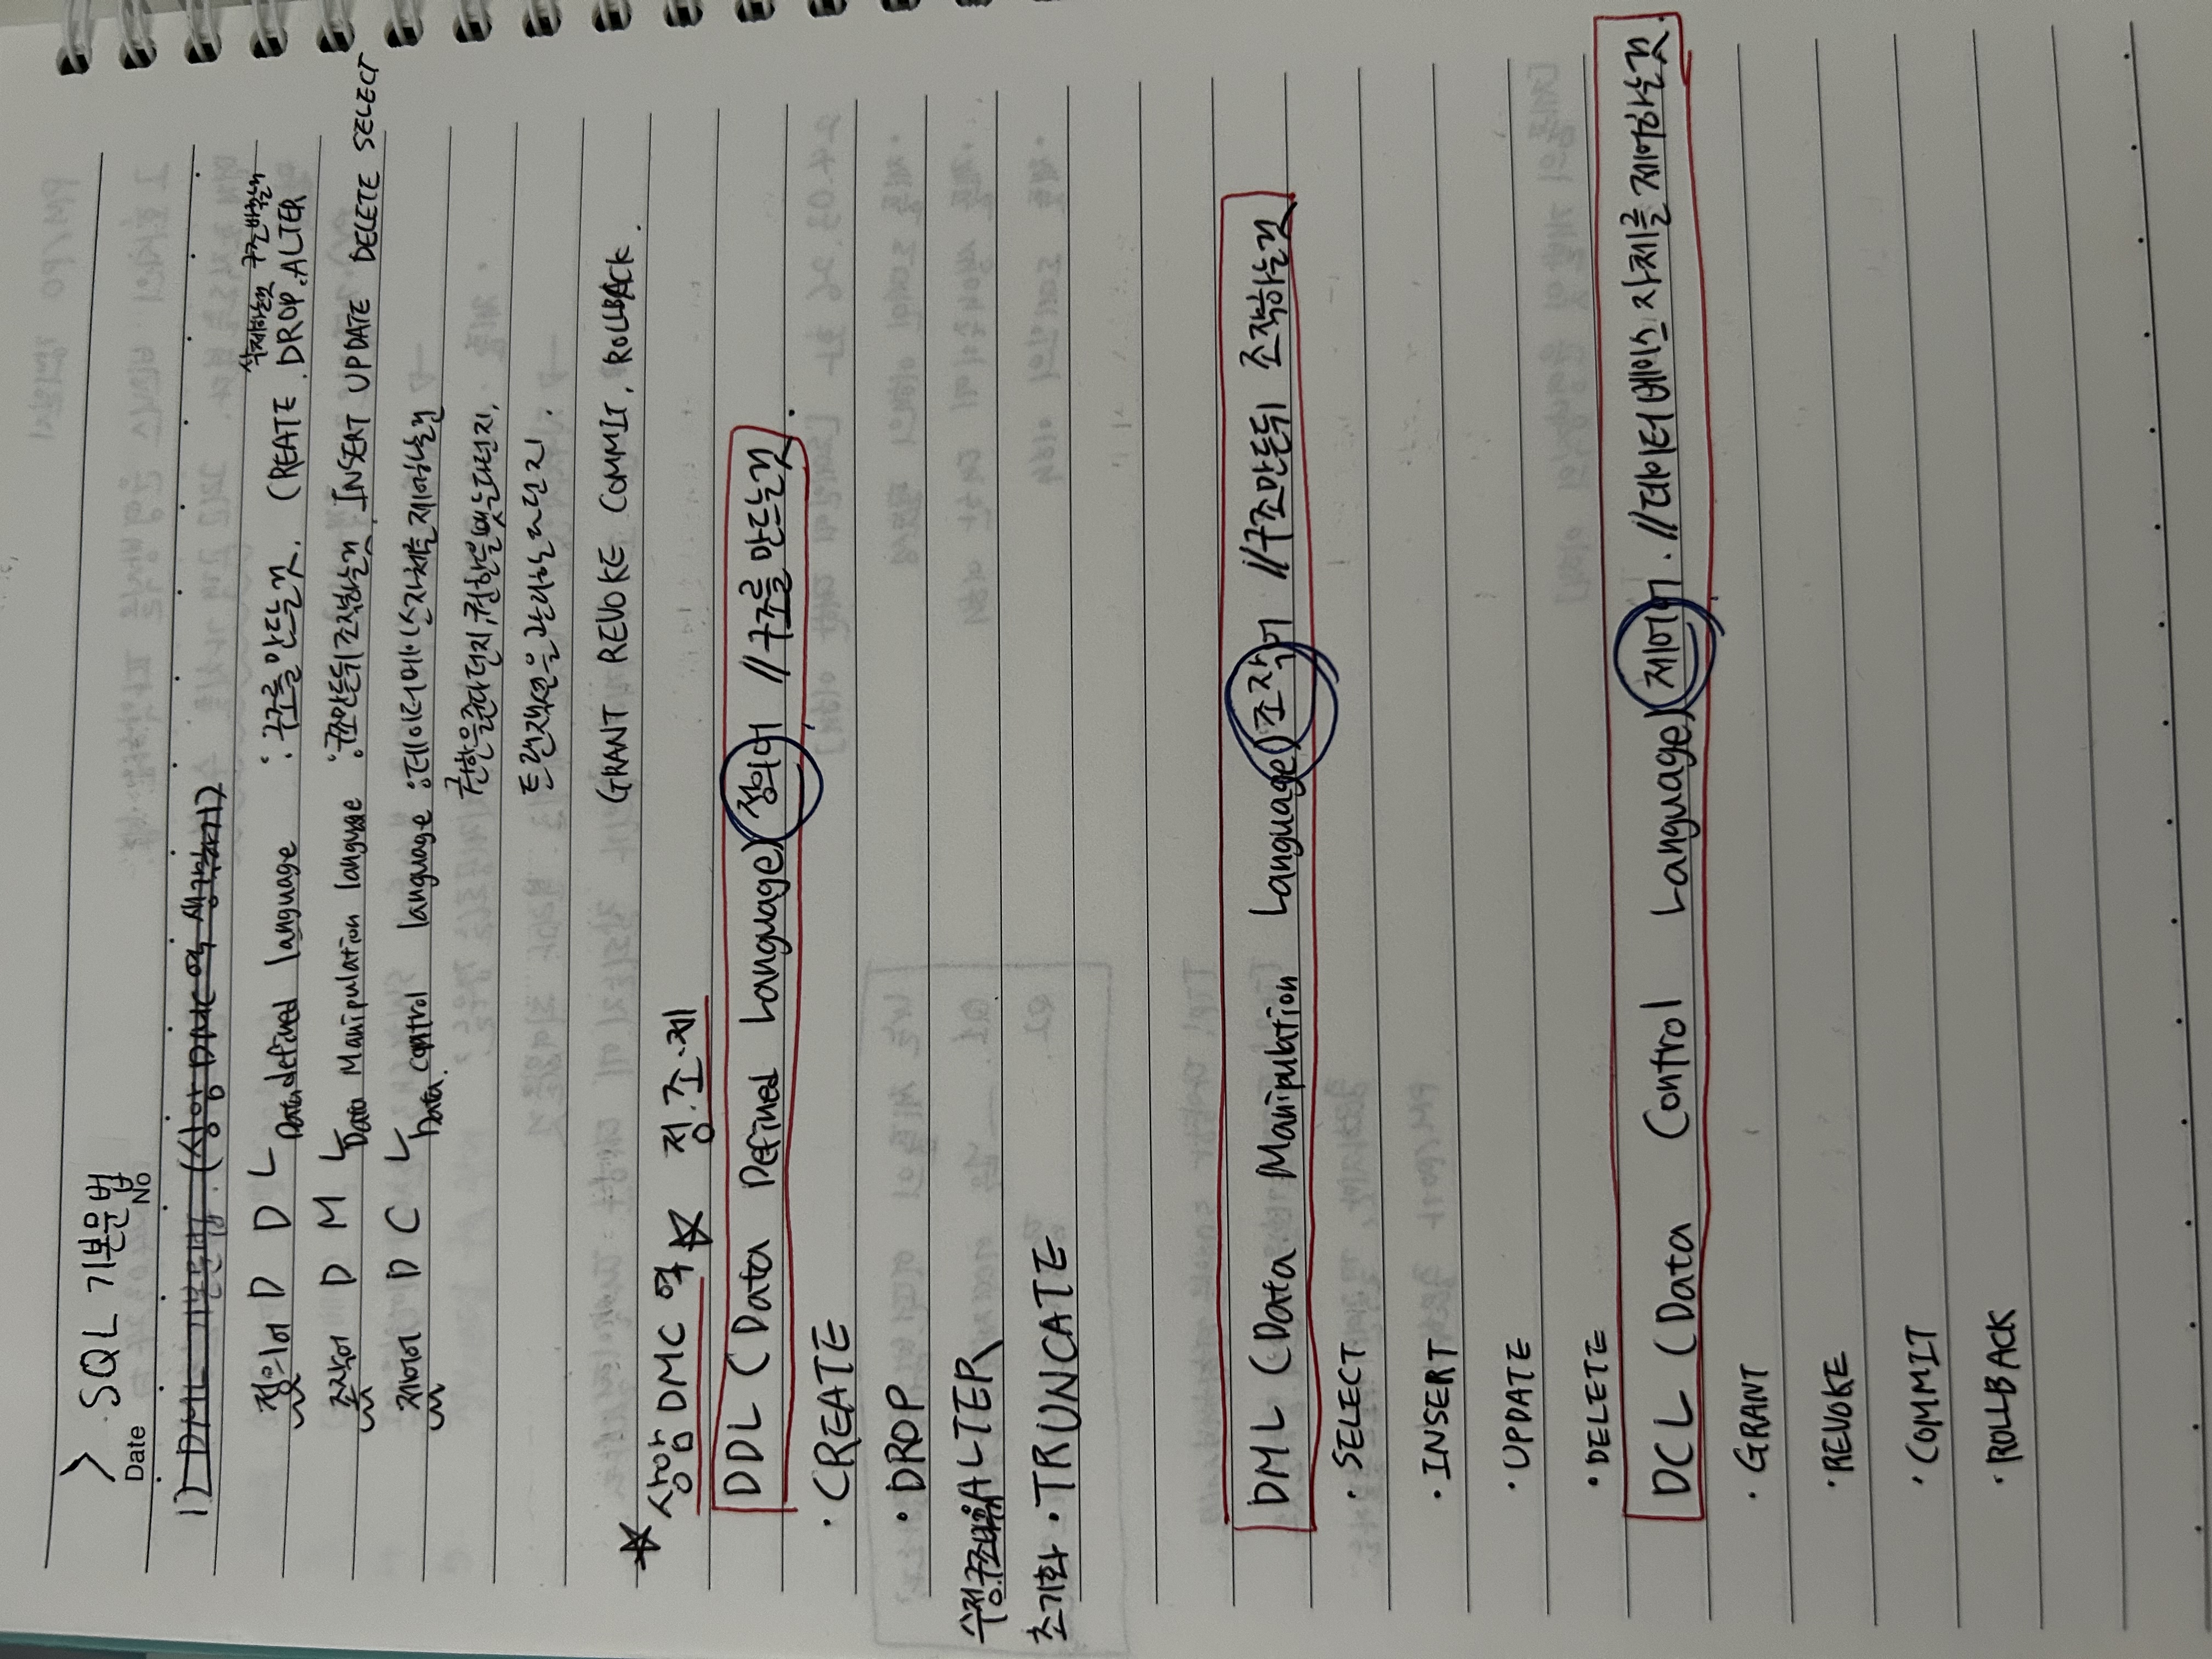 > SQL 기본문법
Date No
1) DML 기본문법. (상암 DMC 역 생각하기)
삭제하는것 구조바꾸는것
정의어 D D L Data defined language : 구조를 만드는것. CREATE. DROP. ALTER
조작어 D M L Data Manipulation language : 구조만든뒤 조작하는것. INSERT UPDATE DELETE SELECT
제어어 D C L Data. control language : 데이터베이스자체를 제어하는것
권한을준다던지, 권한을뺏는다던지,
트랜잭션을관리한다던지.
GRANT REVOKE COMMIT, ROLLBACK.
☆ 상암 DMC 역 ☆ 정.조.제
DDL (Data Defined Language) 정의어, // 구조를 만드는것.
· CREATE
· DROP
수정.구조바꿈 ALTER
초기화 · TRUNCATE
DML (Data Manipulation Language) 조작어 // 구조만든뒤 조작하는것
· SELECT
· INSERT
· UPDATE
· DELETE
DCL (Data Control Language) 제어어. // 데이터베이스 자체를 제어하는것.
· GRANT
· REVOKE
· COMMIT
· ROLLBACK